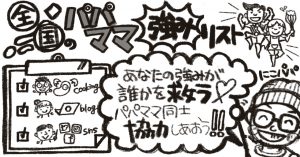 全国の
パパ
ママ
強みリスト
coding
blog
sns
あなたの強みが
誰かを救う
パパママ同士
協力しあおう!!
にこパパ